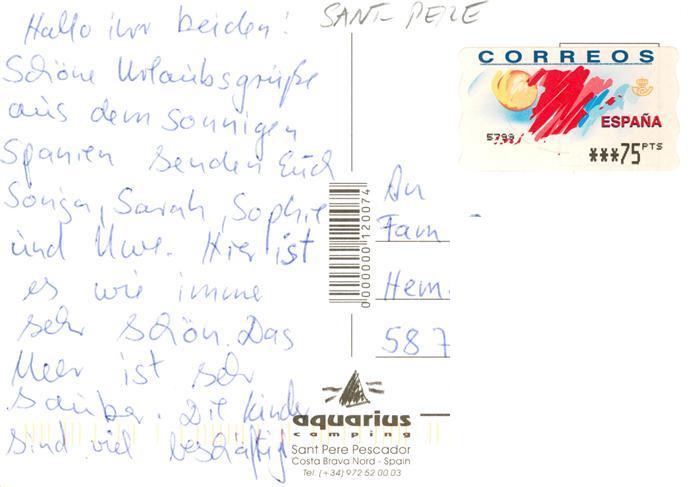 Hallo ihr beiden!
Schöne Urlaubsgrüße
aus dem sonnigen
Spanien senden Euch
Sonja, Sarah, Sophie
und Uwe. Hier ist
es wie imme
sehr schön. Das
Meer ist sehr
sauber. Die Kinder
sind viel beschäftigt
SANT PERE
CORREOS
ESPAÑA
5799
***75 PTS
0000000 120074
An
Fam
Hem.
587
aquarius
camping
Sant Pere Pescador
Costa Brava Nord - Spain
Tel. (+34) 972 52 00 03